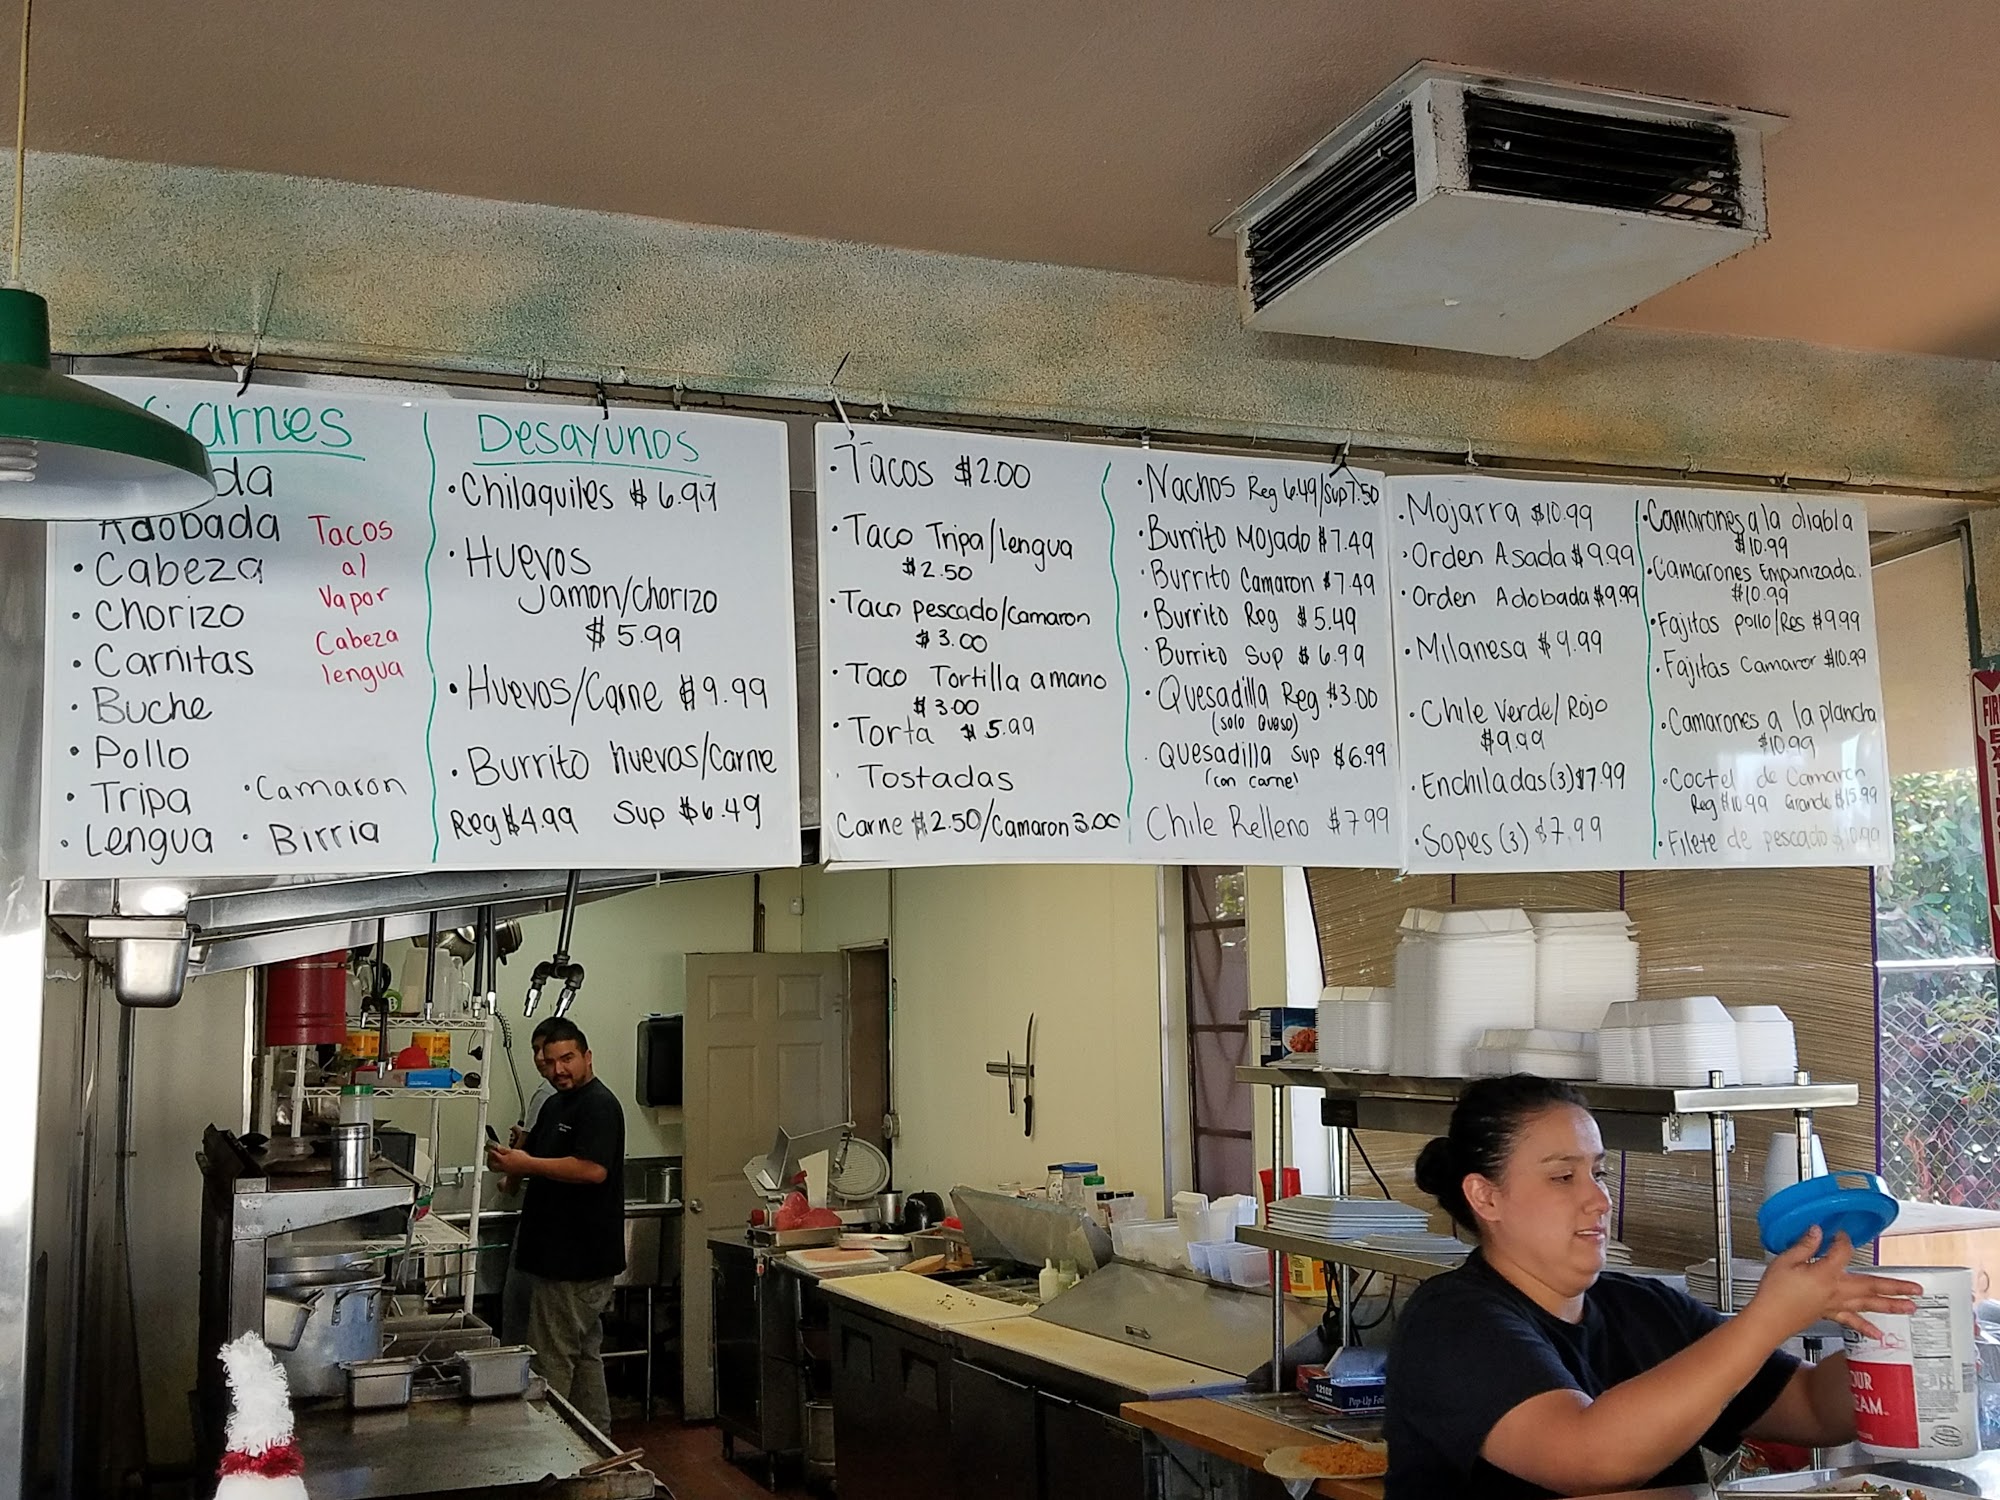 Carnes
Adobada
• Cabeza
• Chorizo
• Carnitas
• Buche
• Pollo
• Tripa
• Lengua
Tacos
al
Vapor
Cabeza
lengua
• Camaron
• Birria
Desayunos
• Chilaquiles $6.99
• Huevos
Jamon/Chorizo
$5.99
• Huevos/Carne $9.99
• Burrito huevos/Carne
Reg $4.99 Sup $6.49
• Tacos $2.00
• Taco Tripa/lengua
$2.50
• Taco pescado/Camaron
$3.00
• Taco Tortilla amano
$3.00
• Torta $5.99
• Tostadas
Carne $2.50/Camaron 3.00
• Nachos Reg 6.49/Sup 7.50
• Burrito Mojado $7.49
• Burrito Camaron $7.49
• Burrito Reg $5.49
• Burrito Sup $6.99
• Quesadilla Reg $3.00
(solo Queso)
• Quesadilla Sup $6.99
(con carne)
Chile Relleno $7.99
• Mojarra $10.99
• Orden Asada $9.99
• Orden Adobada $9.99
• Milanesa $9.99
• Chile Verde/Rojo
$9.99
• Enchiladas (3) $7.99
• Sopes (3) $7.99
• Camarones a la diabla
$10.99
• Camarones Empanizada.
$10.99
• Fajitas pollo/Res $9.99
• Fajitas Camaror $10.99
• Camarones a la plancha
$10.99
• Coctel de Camaron
Reg $10.99 Grande $15.99
• Filete de pescado $10.99
FIRE
Pop-Up Foil